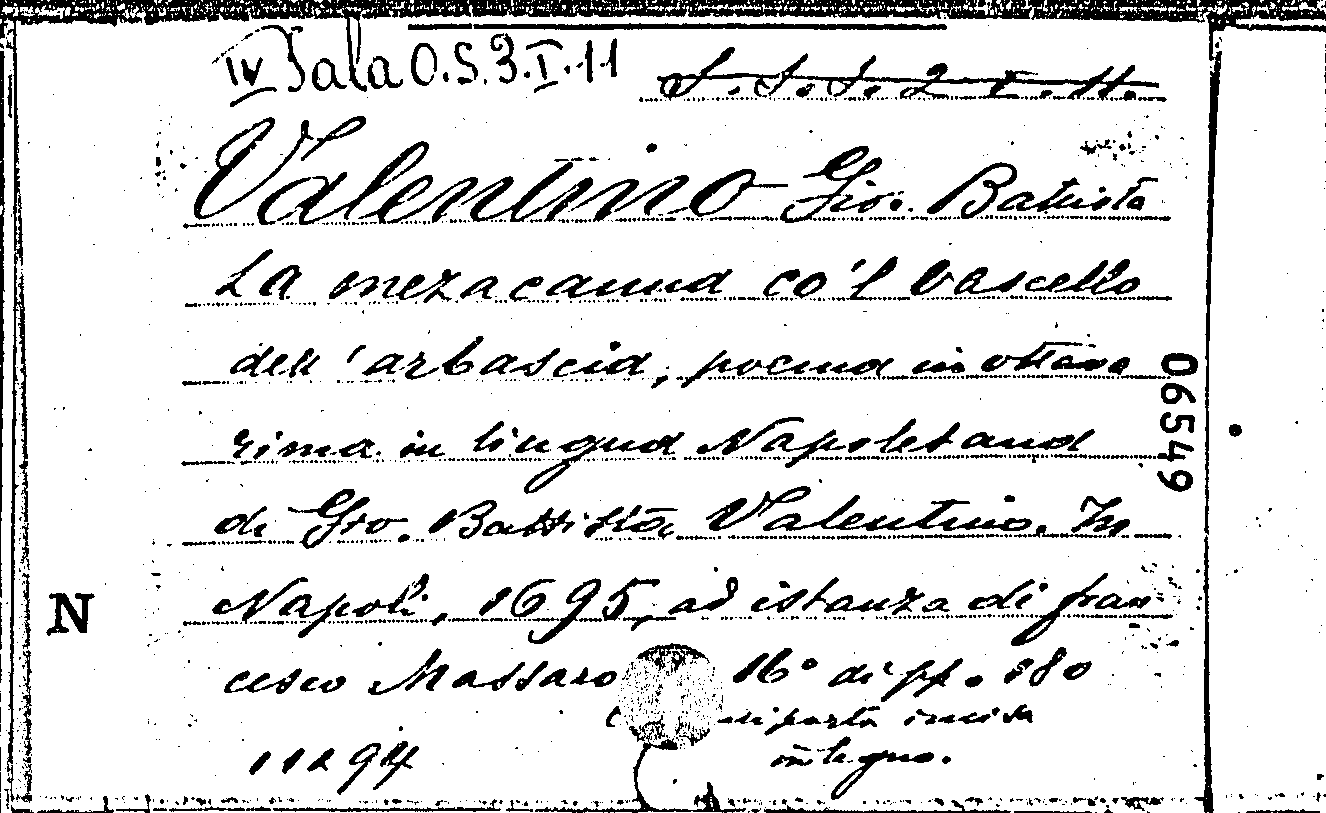 IV Sala O.S.3.I.11
S.S.S. 2 I. 11.
Valentino Gio. Battista
La mezacanna co'l vascello
dell'arbascia, poema in ottava
rima in lingua Napoletana
di Gio. Battista Valentino. In
Napoli, 1695, ad istanza di Fran
cesco Massaro 16° di pp. 380
incisa
in legno.
11294
06549
N